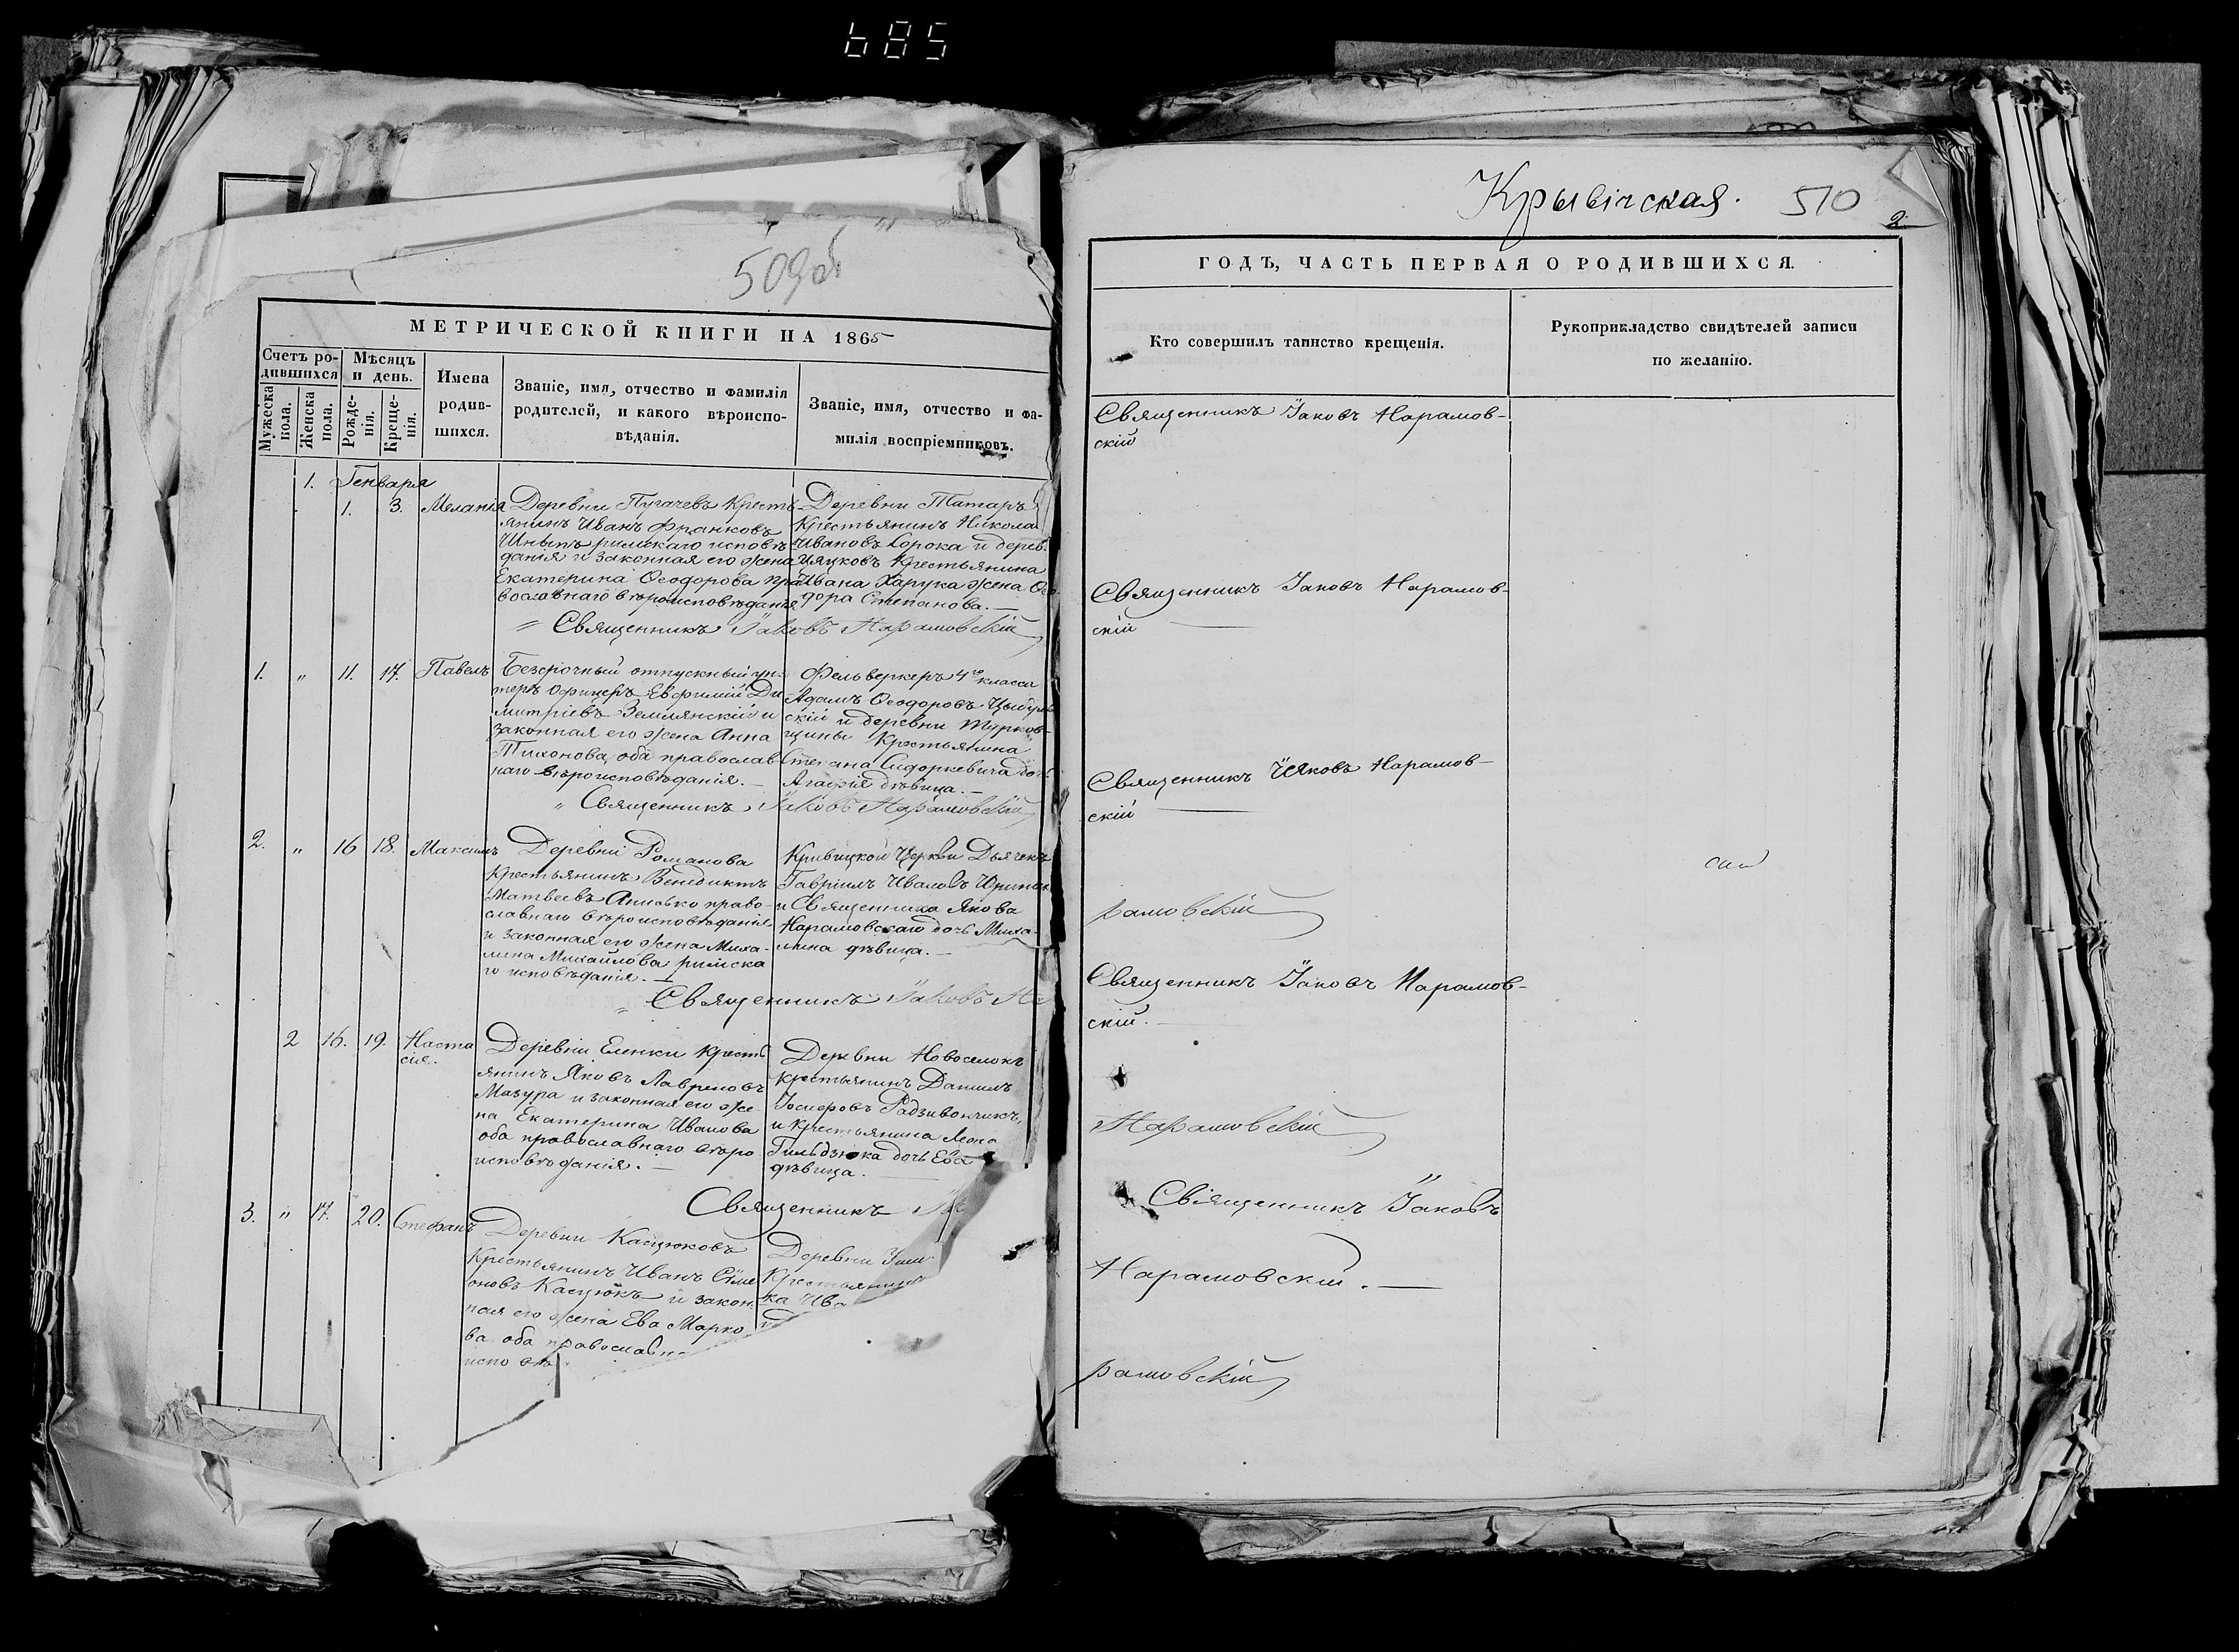 685
509об
МЕТРИЧЕСКОЙ КНИГИ НА 1865
Счетъ ро-
дившихся
Мужеска
пола.
Женска
пола.
Мѣсяцъ
и день.
Рожде-
нія.
Креще-
нія.
Имена
родив-
шихся.
Званіе, имя, отчество и фамилія
родителей, и какого вѣроиспо-
вѣданія.
Званіе, имя, отчество и фа-
милія воспріемниковъ.
1. Генваря
1. 3. Меланія
Деревни Пугачевъ Кресть-
янинъ Иванъ Франковъ
римскаго исповѣ-
данія и законная его жена
Екатерина Ѳеодорова пра-
вославнаго вѣроисповѣданія.
Деревни Татаръ
Крестьянинъ Никола
Ивановъ Сорока и дерев.
Крестьянина
Ивана Харука жена Ѳео
дора Степанова. —
„ Священникъ Іаковъ Нарамовскій
1. „ 11. 17. Павелъ
Безсрочный отпускный ун-
теръ Офицеръ Евфимій Ди-
митріевъ Землянскій и
законная его жена Анна
Тихонова, оба православ
наго вѣроисповѣданія. —
Фельверкеръ 4го класса
Адамъ Ѳеодоровъ
скій и деревни Турков-
щины Крестьянина
Степана Сидоркевича доч
Агафія дѣвица. —
„ Священникъ Іаковъ Нарамовскій
2. „ 16 18. Максимъ
Деревни Романова
Крестьянинъ Венедиктъ
Матвеевъ Анисько право-
славнаго вѣроисповѣданія
и законная его жена Миха-
лина Михайлова римска
го исповѣданія. —
Кривицкой Церкви Дьячекъ
Гавріилъ Ивановъ
и Священника Якова
Нарамовскаго дочь Миха-
лина дѣвица. —
„ Священникъ Іаковъ На
2 16. 19. Наста
сія.
Деревни Еленки Кресть
янинъ Яковъ Лавреновъ
Мазура и законная его же-
на Екатерина Иванова
оба православнаго вѣро
исповѣданія. —
Деревни Новоселокъ
Крестьянинъ Даніилъ
Іосифовъ Радзивончикъ,
и Крестьянина Леона
Гильдзюка дочь Ева
дѣвица. —
Священникъ
3. „ 17. 20. Стефанъ
Деревни Касцюковъ
Крестьянинъ Иванъ Симе
оновъ Касцюкъ и закон
ная его жена Ева Марко
ва оба православна
испо вѣ
Деревни
Крестьянинъ
ка Ива
Крывічская. 510 2.
ГОДЪ, ЧАСТЬ ПЕРВАЯ О РОДИВШИХСЯ.
Кто совершилъ таинство крещенія.
Рукоприкладство свидѣтелей записи
по желанію.
Священникъ Іаковъ Нарамов-
скій
Священникъ Іаковъ Нарамов-
скій —
Священникъ Іяковъ Нарамов-
скій —
рамовскій
Священникъ Іаковъ Нарамов-
скій. —
Нарамовскій
Священникъ Іаковъ
Нарамовскій. —
рамовскій